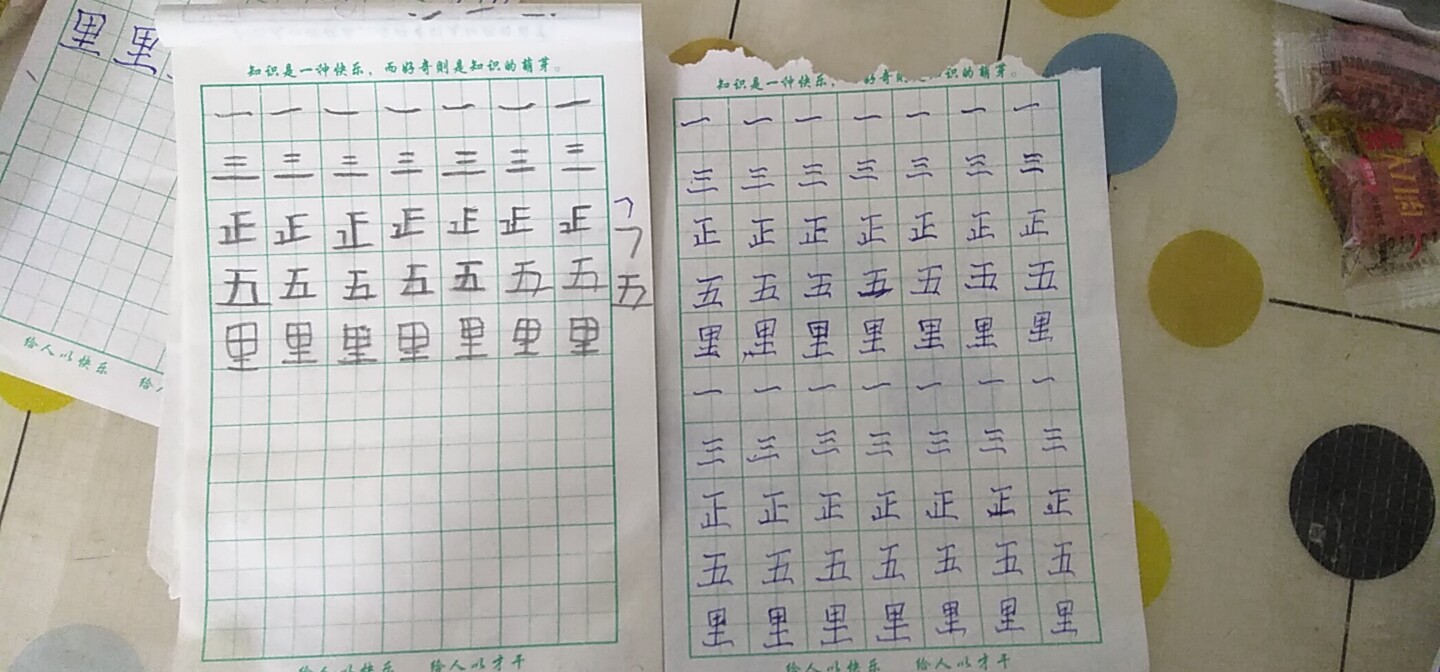 里 里
给人以快乐 给人
知识是一种快乐，而好奇则是知识的萌芽。
一 一 一 一 一 一 一
三 三 三 三 三 三 三
正 正 正 正 正 正 正
五 五 五 五 五 五 五 五
里 里 里 里 里 里 里
给人以快乐 给人以才干
知识是一种快乐，好奇则识的萌芽。
一 一 一 一 一 一 一
三 三 三 三 三 三 三
正 正 正 正 正 正 正
五 五 五 五 五 五 五
里 里 里 里 里 里 里
一 一 一 一 一 一 一
三 三 三 三 三 三 三
正 正 正 正 正 正 正
五 五 五 五 五 五 五
里 里 里 里 里 里 里
给人以快乐 给人以才干